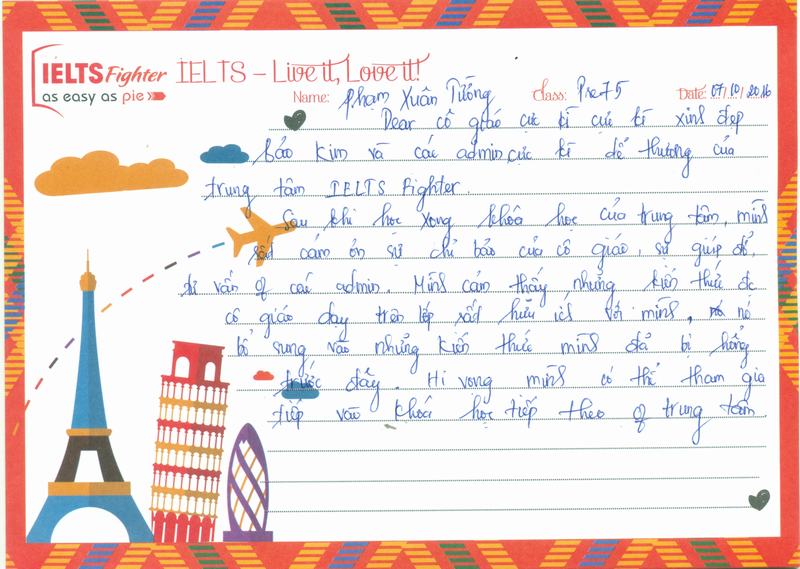 IELTS Fighter
as easy as pie
IELTS – Live it, Love it!
Name: Phạm Xuân Tưởng Class: Pre75 Date: 07/10/2016
Dear cô giáo cực kì cực kì xinh đẹp
Bảo Kim và các admin cực kì dễ thương của
trung tâm IELTS Fighter.
Sau khi học xong khóa học của trung tâm, mình
rất cám ơn sự chỉ bảo của cô giáo, sự giúp đỡ,
tư vấn of các admin. Mình cảm thấy những kiến thức đc
cô giáo dạy trên lớp rất hữu ích với mình, nó
bổ sung vào những kiến thức mình đã bị hổng
trước đây. Hi vọng mình có thể tham gia
tiếp vào khoá học tiếp theo of trung tâm.